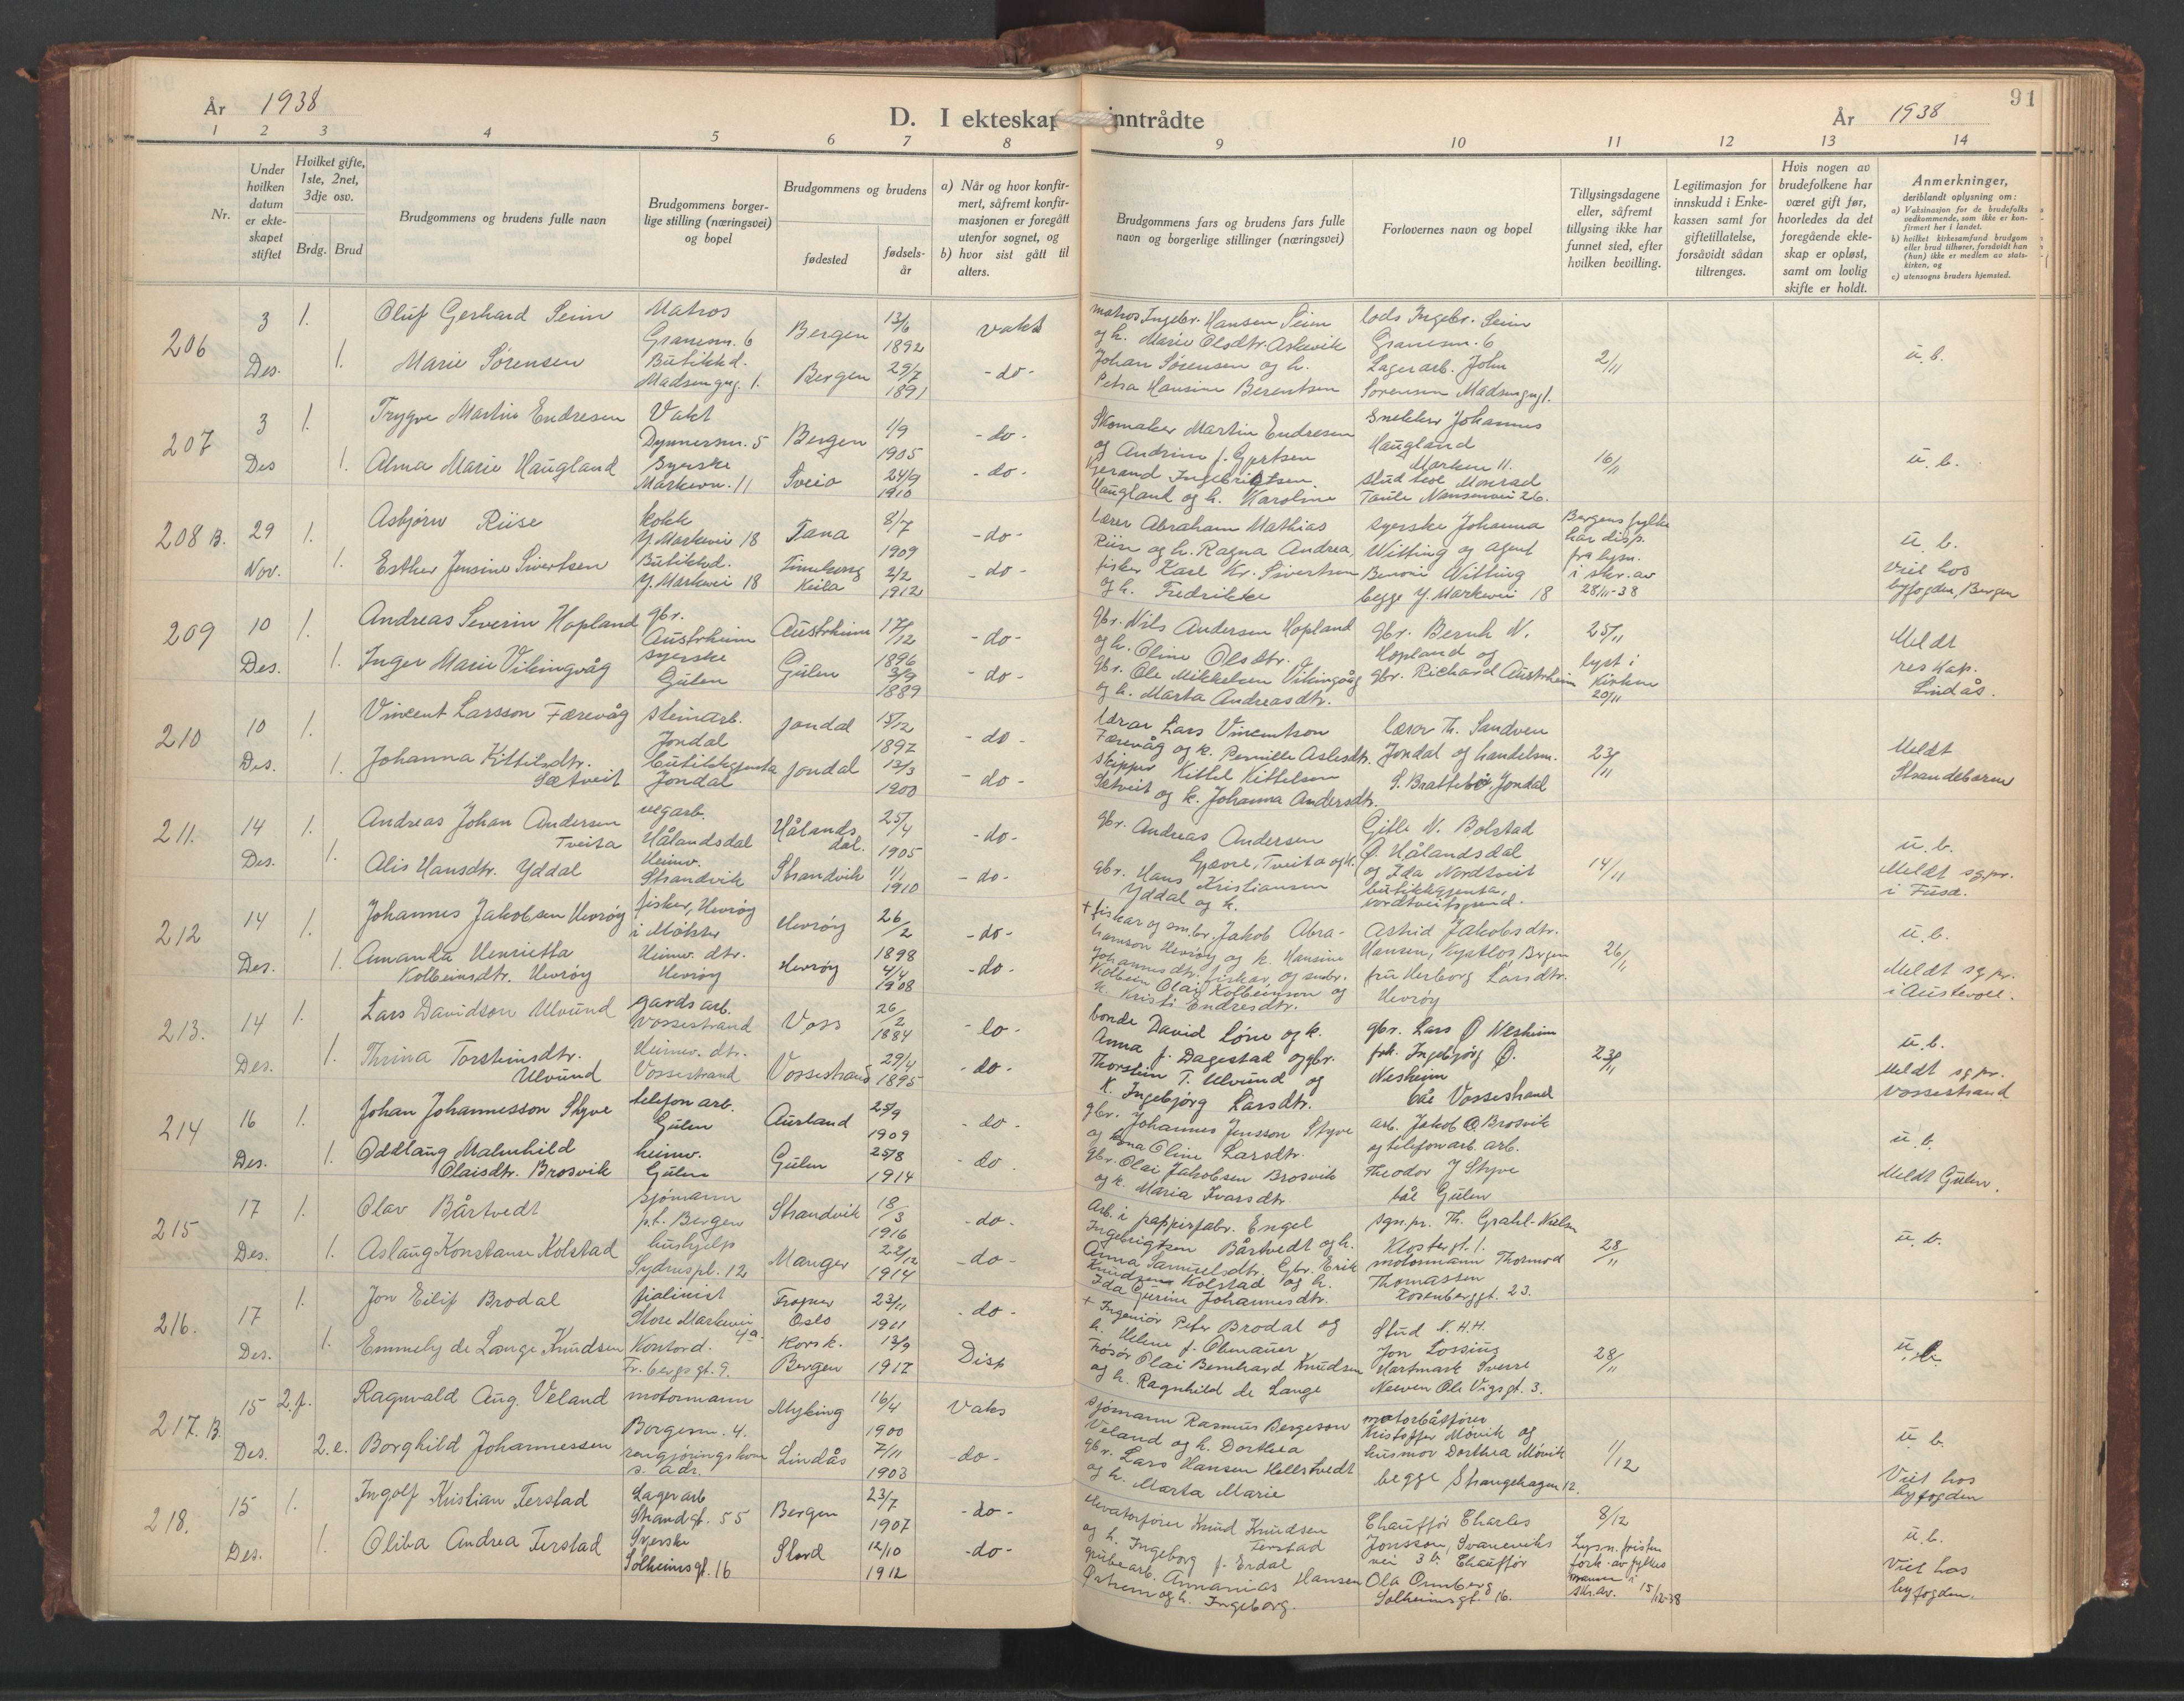 År 1938
D. I ekteskap inntrådte
År 1938
91
1 2 3 4 5 6 7 8 9 10 11 12 13 14
Nr.
Under hvilken datum er ekteskapet stiftet
Hvilket gifte, 1ste, 2net, 3dje osv.
Brdg. Brud
Brudgommens og brudens fulle navn
Brudgommens borgerlige stilling (næringsvei) og bopel
Brudgommens og brudens
fødested
fødselsår
a) Når og hvor konfirmert, såfremt konfirmasjonen er foregått utenfor sognet, og
b) hvor sist gått til alters.
Brudgommens fars og brudens fars fulle navn og borgerlige stillinger (næringsvei)
Forlovernes navn og bopel
Tillysingsdagene eller, såfremt tillysing ikke har funnet sted, efter hvilken bevilling.
Legitimasjon for innskudd i Enkekassen samt for giftetillatelse, forsåvidt sådan tiltrenges.
Hvis nogen av brudefolkene har været gift før, hvorledes da det foregående ekteskap er opløst, samt om lovlig skifte er holdt.
Anmerkninger, deriblandt oplysning om:
a) Vaksinasjon for de brudefolks vedkommende, som ikke er konfirmert her i landet.
b) hvilket kirkesamfund brudgom eller brud tilhører, forsåvidt han (hun) ikke er medlem av statskirken, og
c) utensogns bruders hjemsted.
206
3 Des.
1. Oluf Gerhard Seim
Matros
Granesm. 6
Bergen
13/6 1892
vaks
1. Marie Sørensen
Butikkd.
Madsengug. 1.
Bergen
29/7 1891
- do -
matros Ingebr. Hansen Seim
og h. Marie Olsdtr. Askevik
Johan Sørensen og h.
Petra Hansine Berentsen
lods Ingebr. Seim
Granesm. 6
Lagerarb. John
Sørensen Madsengugl.
2/11
u. b.
207
3 Des
1. Trygve Martin Endresen
Vakt
Dynnersm. 5
Bergen
1/9 1905
- do -
1. Alma Marie Haugland
Syerske
Markevn. 11
Sveio
24/9 1910
- do -
Skomaker Martin Endresen
og Andrine f. Gjertsen
Gerand Ingebrigtsen
Haugland og h. Karoline
Snekker Johannes
Haugland
Marken 11.
stud teol Monrad
Taule Nansenvei 26.
16/11
u. b.
208 B.
29 Nov.
1. Asbjørn Riise
Kokk
Y. Markevei 18
Tana
8/7 1909
- do -
1. Esther Jensine Sivertsen
Butikkd.
Y. Markevei 18
2/2 1912
- do -
lærer Abraham Mathias
Riise og h. Ragna Andrea,
fisker Karl Kr. Sivertsen
og h. Fredrikke
syerske Johanna
Witting og agent
Benoni Witting
begge Y. Markevei 18
Bergens fylke
har disp.
fra lysn.
i skr. av
28/11-38
u. b.
Viet hos
byfogden, Bergen
209
10 Des.
1. Andreas Severin Hopland
gbr.
Austrheim
Austrheim
17/12 1896
- do -
1. Inger Marie Vikingvåg
syerske
Gulen
Gulen
3/9 1889
- do -
gbr. Nils Andersen Hopland
og h. Oline Olsdtr.
gbr. Ole Mikkelsen Vikingvåg
og h. Marta Andreasdtr.
gbr. Bernh N.
Hopland og
gbr. Richard Austrheim
25/11
lyst i
kirken
20/11
Meldt
res kap.
Lindås.
210
10 Des.
1. Vincent Larsson Færevåg
steinarb.
Jondal
Jondal
15/12 1892
- do -
1. Johanna Kittilsdtr.
Sætveit
butikkgjenta
Jondal
Jondal
13/3 1900
- do -
lærar Lars Vincentson
Færevåg og k. Pernille Aslesdtr.
skipper Kittel Kittelsen
Sætveit og k. Johanna Andersdtr.
lærer Th. Sandven
Jondal og handelsm.
S. Brattebø, Jondal
23/11
Meldt
Strandebarm
211.
14 Des.
1. Andreas Johan Andersen
Tveita
vegarb.
Hålandsdal
Hålandsdal.
25/4 1905
- do -
1. Alis Hansdtr. Yddal
Heimv.
Strandvik
Strandvik
1/1 1910
- do -
gbr. Andreas Andersen
Gjavre, Tveita og k.
gbr. Hans Kristiansen
Yddal og k.
Gitle N. Bolstad
Ø. Hålandsdal
og Ida Nordtveit
butikkgjenta,
nordtveitgrend.
14/11
u. b.
Meldt sgpr.
i Fusa.
212
14 Des.
1. Johannes Jakobsen Hevrøy
fisker, Hevrøy
i Møkster
Hevrøy
26/2 1898
- do -
1. Amanda Henrietta
Kolbeinsdtr. Hevrøy
Heimv. dtr.
Hevrøy
Hevrøy
4/4 1908
- do -
+ fiskar og smbr. Jakob Abrahamson Hevrøy og k. Hansine
Johannesdtr. fiskar, og smbr.
Kolbein Olai Kolbeinson og
k. Kristi Endresdtr.
Astrid Jakobsdtr.
Hansen, Bergen
fru Herborg Larsdtr.
Hevrøy
26/11
u. b.
Meldt sgpr.
i Austevoll.
213.
14 Des.
1. Lars Davidson Ulvund
gardsarb.
Vossestrand
Voss
26/2 1884
- do -
1. Thrina Torsteinsdtr.
Ulvund
Heimv. dtr.
Vossestrand
Vossestrand
29/4 1895
- do -
bonde David Løne og k.
Anna f. Dagestad og gbr.
Thorstein T. Ulvund og
k. Ingebjørg Larsdtr.
gbr. Lars Ø Nesheim
frk. Ingebjørg Ø.
Nesheim
båe Vossestrand
23/11
u. b.
Meldt sgpr.
Vossestrand
214
16 Des.
1. Johan Johannesson Skyve
telefonarb.
Gulen
Aurland
25/9 1909
- do -
1. Oddlaug Malmhild
Olaisdtr. Brosvik
heimv.
Gulen
Gulen
25/8 1914
- do -
gbr. Johannes Jensson Skyve
og Oline Larsdtr.
gbr. Olai Jakobsen Brosvik
og k. Maria Ivarsdtr
arb. Jakob O. Brosvik
og telefonarb. arb.
Theodor J Skyve
båe Gulen
u. b.
Meldt Gulen.
215
17 Des.
1. Olav Bårtvedt
sjømann
p.t. Bergen
Strandvik
18/3 1916
- do -
1. Aslaug Konstanse Kolstad
hushjelp
Sydnespl. 12
Manger
22/12 1914
- do -
Arb. i pappirfabr. Engel
Ingebrigtsen Bårtvedt og h.
Anna Samuelsdtr. Gbr. Erik
Knudsen Kolstad og h.
Ida Gurine Johannesdtr.
sgn.pr. Th. Grahl-Nielsen
Klostergt. 1.
motormann Thormod
Thomassen
Rosenberggt. 23.
28/11
u. b.
216.
17 Des.
1. Jon Eilif Brodal
fiolinist
Store Markevei 4a.
Frogner
Oslo
23/11 1911
- do -
1. Emmely de Lange Knudsen
Kontord.
Fr. bergsgt. 9.
Korsk.
Bergen
13/9 1917
Disp
+ Ingeniør Peter Brodal og
h. Helene f. Obenauer
Frisør Olai Bernhard Knudsen
og h. Ragnhild de Lange
Stud N.H.H.
Jon Lossius
Hartmark Sverre
Neeven Ole Vigsgt. 3.
28/11
u. b.
217. B.
15 Des.
2. f. Ragnvald Aug. Veland
motormann
Borgesm. 4.
Myking
16/4 1900
Vaks
2. e. Borghild Johannessen
rengjøringskone
s. adr.
Lindås
7/11 1903
- do -
sjømann Rasmus Bergeson
Veland og h. Dorthea
gbr. Lars Hansen Helltvedt
og h. Marta Marie
motorbåtfører
Kristoffer Møvik og
husmor Dorthea Møvik
begge Strangehagen 12.
1/12
u. b.
Viet hos
byfogden
218.
15 Des.
1. Ingolf Kristian Ferstad
Lagerarb
Strandgt. 55
Bergen
23/7 1907
- do -
1. Oliba Andrea Ferstad
Syerske
Solheimsgt. 16
Stord
12/10 1912
- do -
Elevatorfører Knud Knudsen
Ferstad
og h. Ingeborg f. Erdal
grubearb. Annanias Hansen
Østrem og h. Ingeborg.
Chauffør Charles
Jonsson, Svaneviks
vei 3 b. Chauffør
Ola Omberg
Solheimsgt. 16.
8/12
Lysn. fristen
fork. av fylkes
mannen i
skr. av. 15/12-38
u. b.
Viet hos
byfogden.